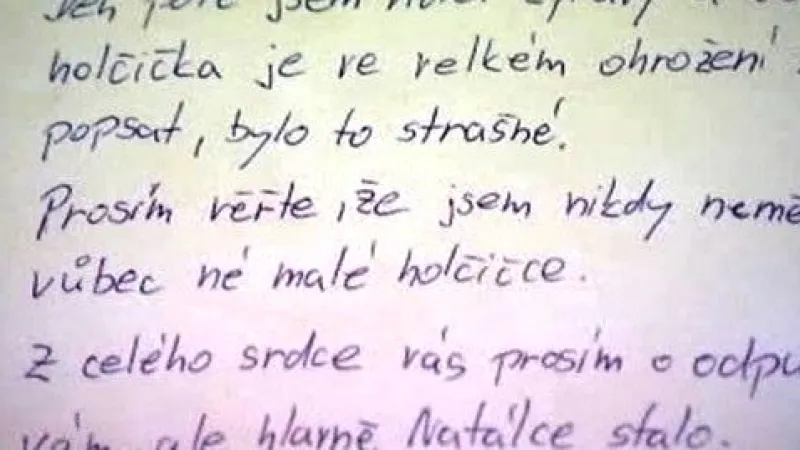 jsem
holčička je ve velkém ohrožení
popsat, bylo to strašné.
Prosím věřte, že jsem nikdy nemě
vůbec né malé holčičce.
Z celého srdce vás prosím o odpu
vám ale hlavně Natálce stalo.